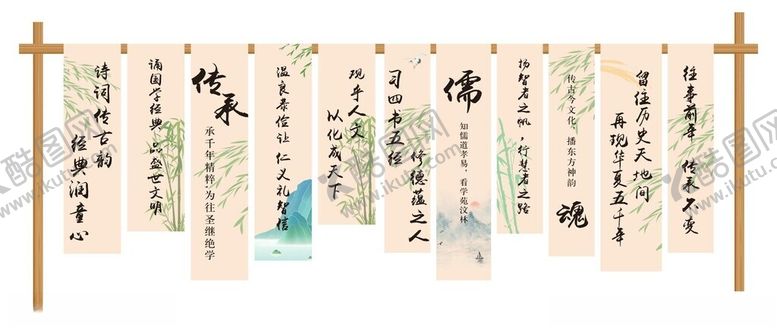 诗词传古韵
经典润童心
诵国学经典
品盛世文明
传承
承千年精粹·为往圣继绝学
温良恭俭让
仁义礼智信
观乎人文
以化成天下
习四书五经
修德蕴之人
儒
知儒道孝易，看学苑汶林
扬智者之帆，行慧者之路
传古今文化，播东方神韵
魂
留住历史天地间
再现华夏五千年
往事前年
传承不变
酷图网
www.ikutu.com